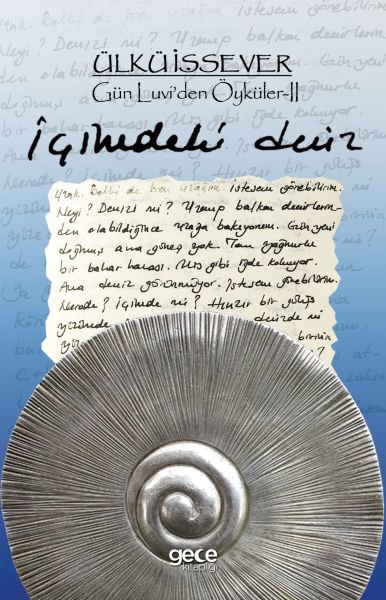 ÜLKÜ İSSEVER
Gün Luvi'den Öyküler-II
İçimdeki deniz
Uzak. Belki de ben uzağım. İstesem görebilirim.
Neyi? Denizi mi? Uzanıp balkon demirlerin-
den olabildiğince uzağa bakıyorum. Gün yeni
doğmuş ama güneş yok. Tam yağmurlu
bir bahar havası. Mis gibi iğde kokuyor.
Ama deniz görünmüyor. İstesem görebilirim.
Nerede? İçimde mi? Hınzır bir gülüş
yüzümde denizde mi
birinin
gece
kitaplığı